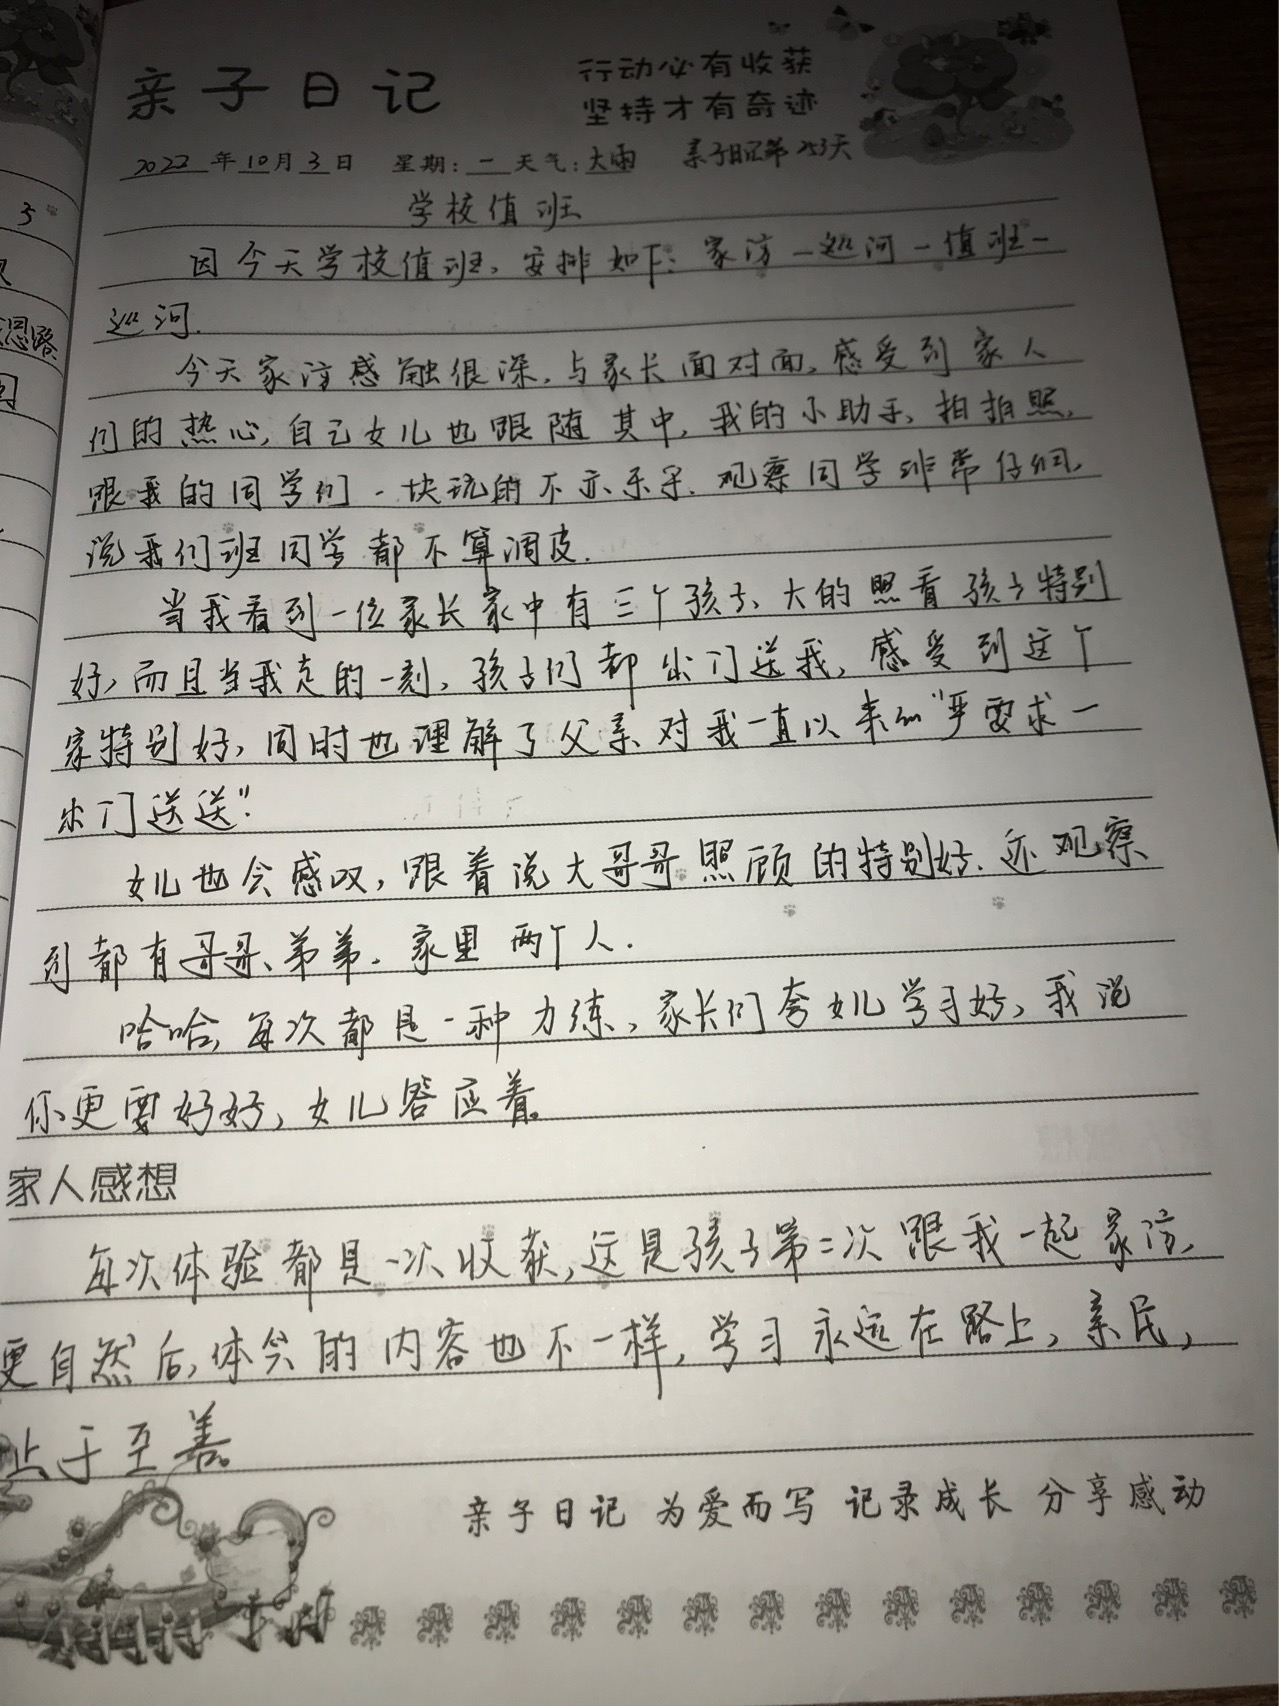 亲子日记
行动必有收获
坚持才有奇迹
2022年10月3日 星期:一 天气:大雨 亲子日记第253天
学校值班
因今天学校值班,安排如下:家访—巡河—值班—
巡河.
今天家访感触很深,与家长面对面,感受到家人
们的热心,自己女儿也跟随其中,我的小助手,拍拍照,
跟我的同学们一块玩的不亦乐乎.观察同学非常仔细,
说我们班同学都不算调皮.
当我看到一位家长家中有三个孩子、大的照看孩子特别
好,而且当我走的一刻,孩子们都出门送我,感受到这个
家特别好,同时也理解了父亲对我一直以来的“严要求—
出门送送”.
女儿也会感叹,跟着说大哥哥照顾的特别好.亦观察
到都有哥哥、弟弟.家里两个人.
哈哈,每次都是一种力练,家长们夸女儿学习好,我说
你更要好好,女儿答应着。
家人感想
每次体验都是一次收获,这是孩子第二次跟我一起家访,
更自然后,体会的内容也不一样,学习永远在路上,亲民,
止于至善。
亲子日记 为爱而写 记录成长 分享感动